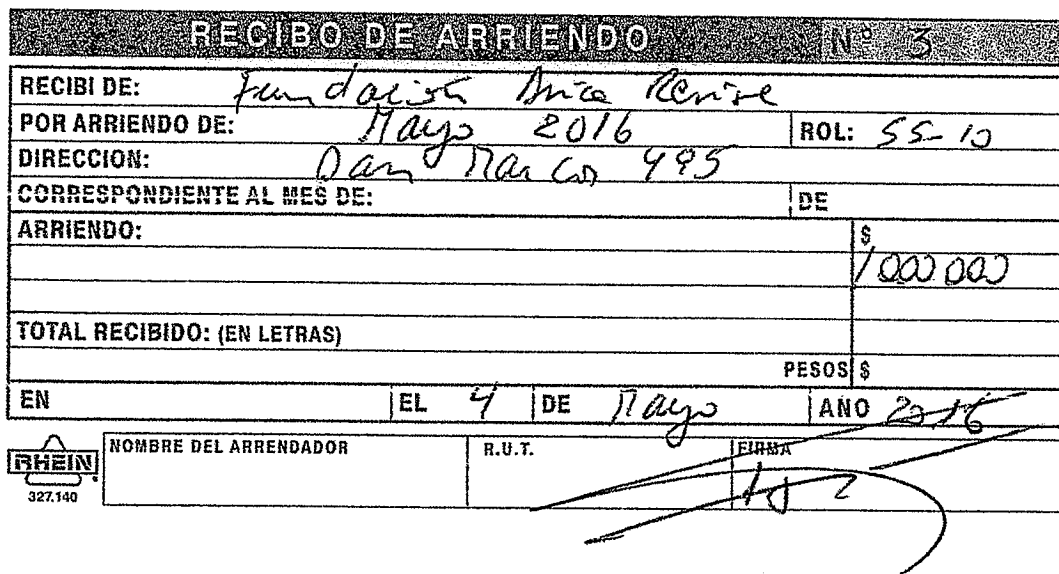 RECIBO DE ARRIENDO Nº 3
RECIBI DE: Fundación Arica Revive
POR ARRIENDO DE: Mayo 2016 ROL: 55-10
DIRECCION: San Marcos 495
CORRESPONDIENTE AL MES DE: DE
ARRIENDO: $
1000000
TOTAL RECIBIDO: (EN LETRAS)
PESOS $
EN EL 4 DE Mayo AÑO 2016
RHEIN NOMBRE DEL ARRENDADOR R.U.T. FIRMA
327.140